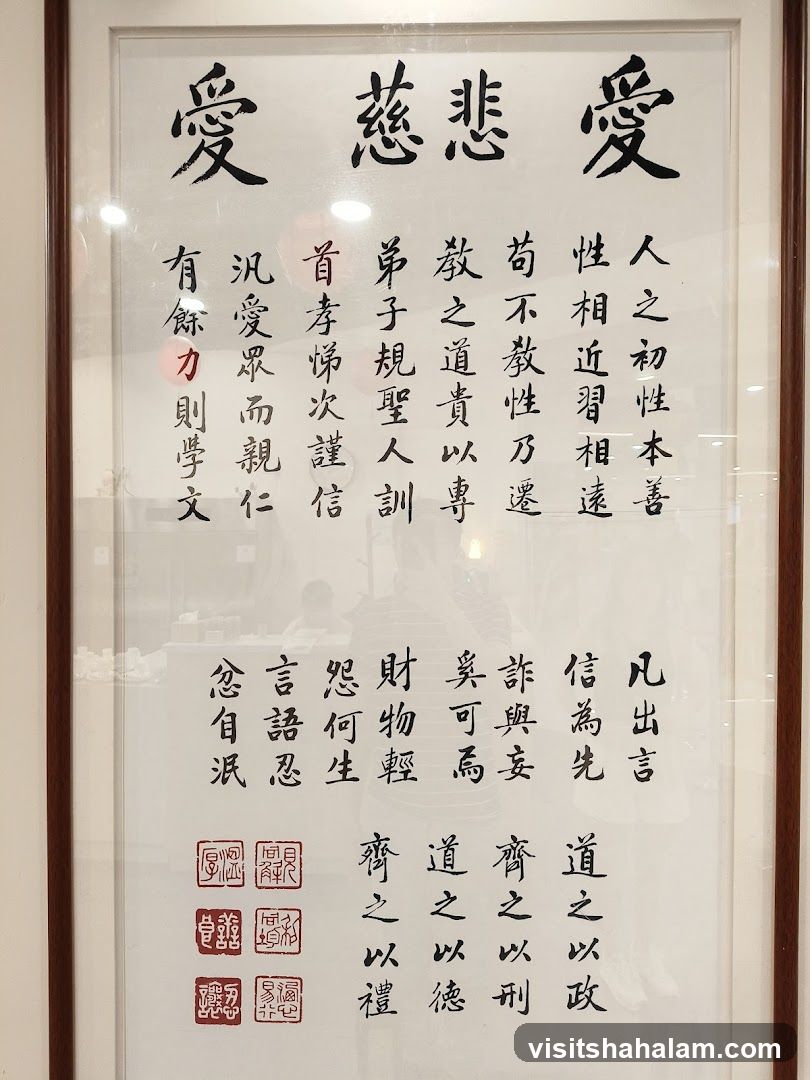 愛 慈悲 愛
人之初性本善
性相近習相遠
苟不教性乃遷
教之道貴以專
弟子規聖人訓
首孝悌次謹信
汎愛眾而親仁
有餘力則學文
凡出言
信為先
詐與妄
奚可焉
財物輕
怨何生
言語忍
忿自泯
道之以政
齊之以刑
道之以德
齊之以禮
visitshahalam.com